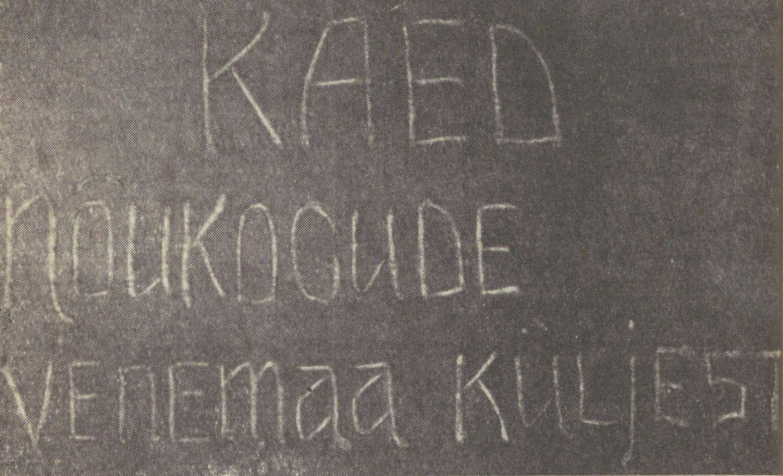 KAED
NÕUKOGUDE
VENEMAA KÜLJEST